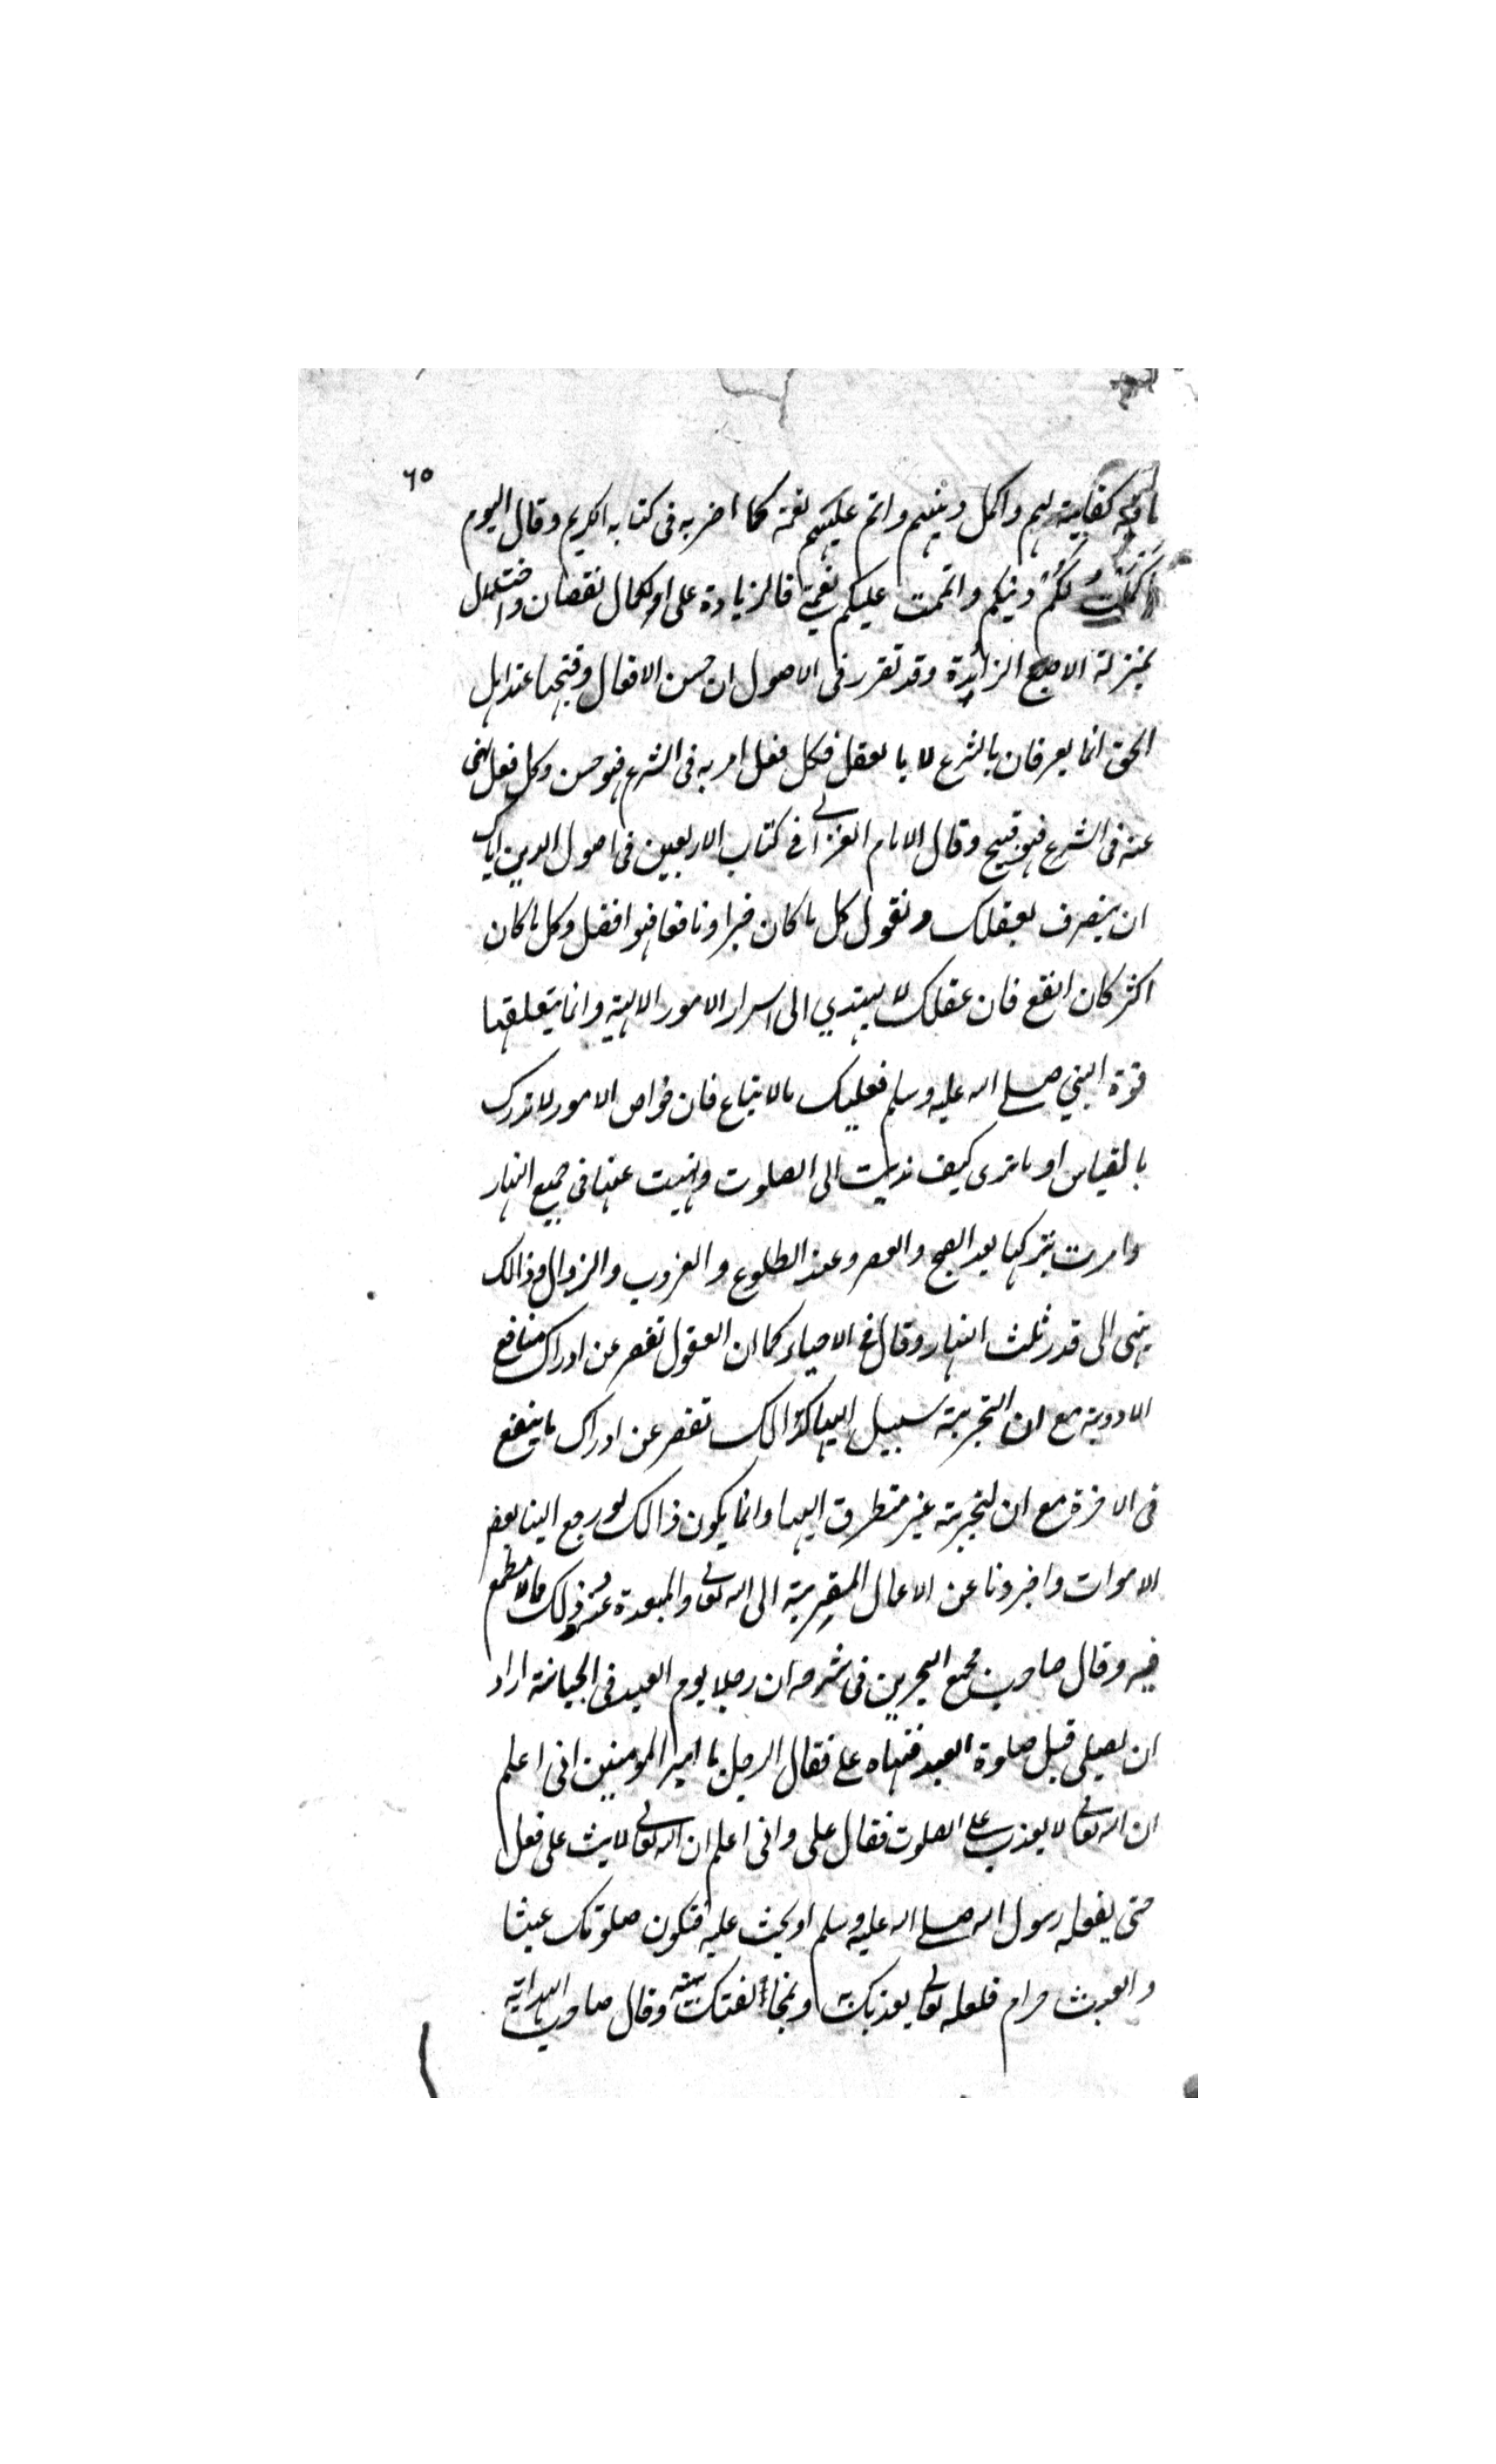 ٦٥
ما فيه كفاية لهم واكمل دينهم واتم عليهم نعمته كما اخبر به فى كتابه الكريم وقال اليوم
اكملت لكم دينكم واتممت عليكم نعمتي فالزيادة على الكمال نقصان واختلال
بمنزلة الاصبع الزائدة وقد تقرر فى الاصول ان حسن الافعال وقبحها عند اهل
الحق انما يعرفان بالشرع لا بالعقل فكل فعل امر به فى الشرع فهو حسن وكل فعل نهى
عنه فى الشرع فهو قبيح وقال الامام الغزالي في كتاب الاربعين فى اصول الدين اياك
ان يتصرف بعقلك وتقول كل ما كان خيرا ونافعا فهو افضل وكل ما كان
اكثر كان انفع فان عقلك لا يهتدي الى اسرار الامور الالهية وانما يتعلقها
قوة النبي صلى الله عليه وسلم فعليك بالاتباع فان خواص الامور لا تدرك
بالقياس او ما ترى كيف نديت الى الصلوت ونهيت عنها فى جميع النهار
وامرت بتركها بعد الصبح والعصر وعند الطلوع والغروب والزوال وذالك
ينتهى الى قدر ثلث النهار وقال في الاحياء كما ان العقول تقصر عن ادراك منافع
الادوية مع ان التجربة سبيل اليها كذالك تقصر عن ادراك ما ينفع
فى الاخرة مع ان التجربة غير متطرق اليها وانما يكون ذالك لو رجع الينا بعض
الاموات واخبرونا عن الاعمال المقربة الى الله تعالى والمبعدة عنه وذلك مما لا مطمع
فيه وقال صاحب مجمع البحرين فى شرحه ان رجلا يوم العيد فى الجبانة اراد
ان يصلى قبل صلوة العيد فنهاه على فقال الرجل يا امير المومنين انى اعلم
ان الله تعالى لا يعذب على الصلوت فقال على وانى اعلم ان الله تعالى لا يثيب على فعل
حتى يفعله رسول الله صلى الله عليه وسلم او يحث عليه فتكون صلوتك عبثا
والعبث حرام فلعله تعالى يعذبك به وبمخالفتك نبيه وقال صاحب الهداية